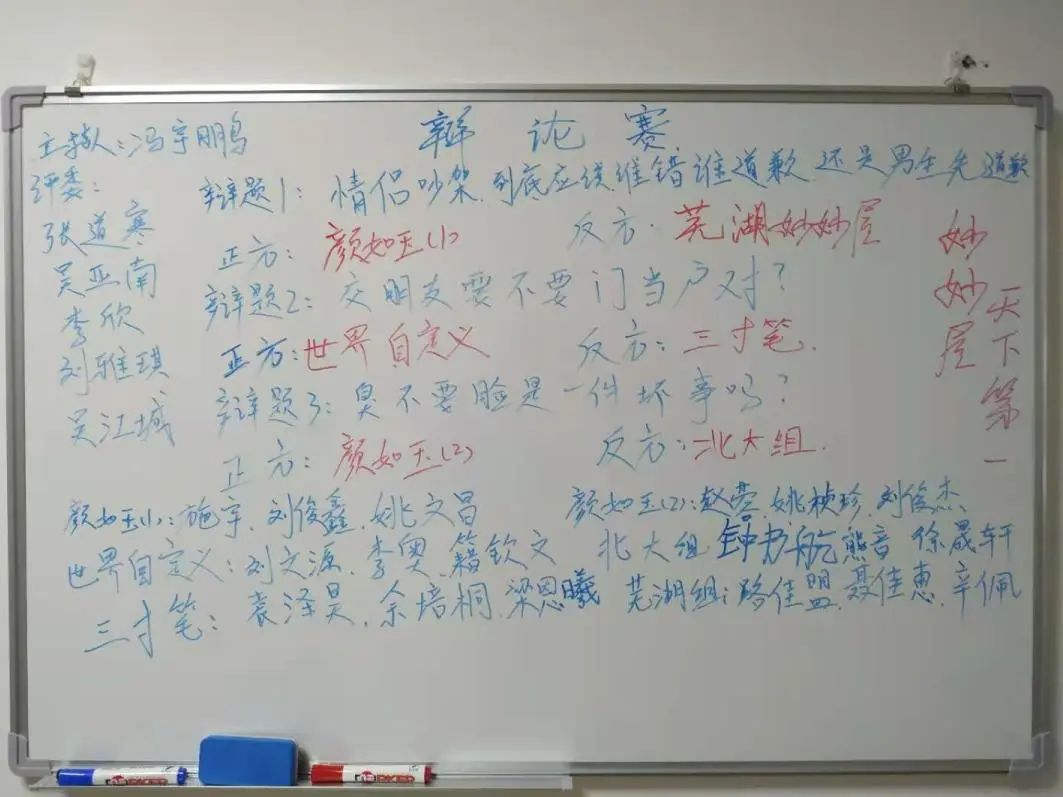 辩论赛
主持人：冯宇鹏
评委：
张道寒
吴亚南
李欣
刘雅琪
吴江城
辩题1：情侣吵架，到底应该谁错谁道歉，还是男生先道歉
正方：颜如玉(1) 反方：芜湖妙妙屋
辩题2：交朋友要不要门当户对？
正方：世界自定义 反方：三寸笔.
辩题3：臭不要脸是一件坏事吗？
正方：颜如玉(2) 反方：北大组.
妙妙屋
天下第一
颜如玉(1)：施宇、刘俊鑫、姚文昌 颜如玉(2)：赵蓥、姚桢珍、刘俊杰
世界自定义：刘文源、李奥、籍钦文 北大组 钟书航 熊音 徐晟轩
三寸笔：袁泽昊、余培桐、梁恩曦 芜湖组：路佳盟、聂佳惠、辛佩